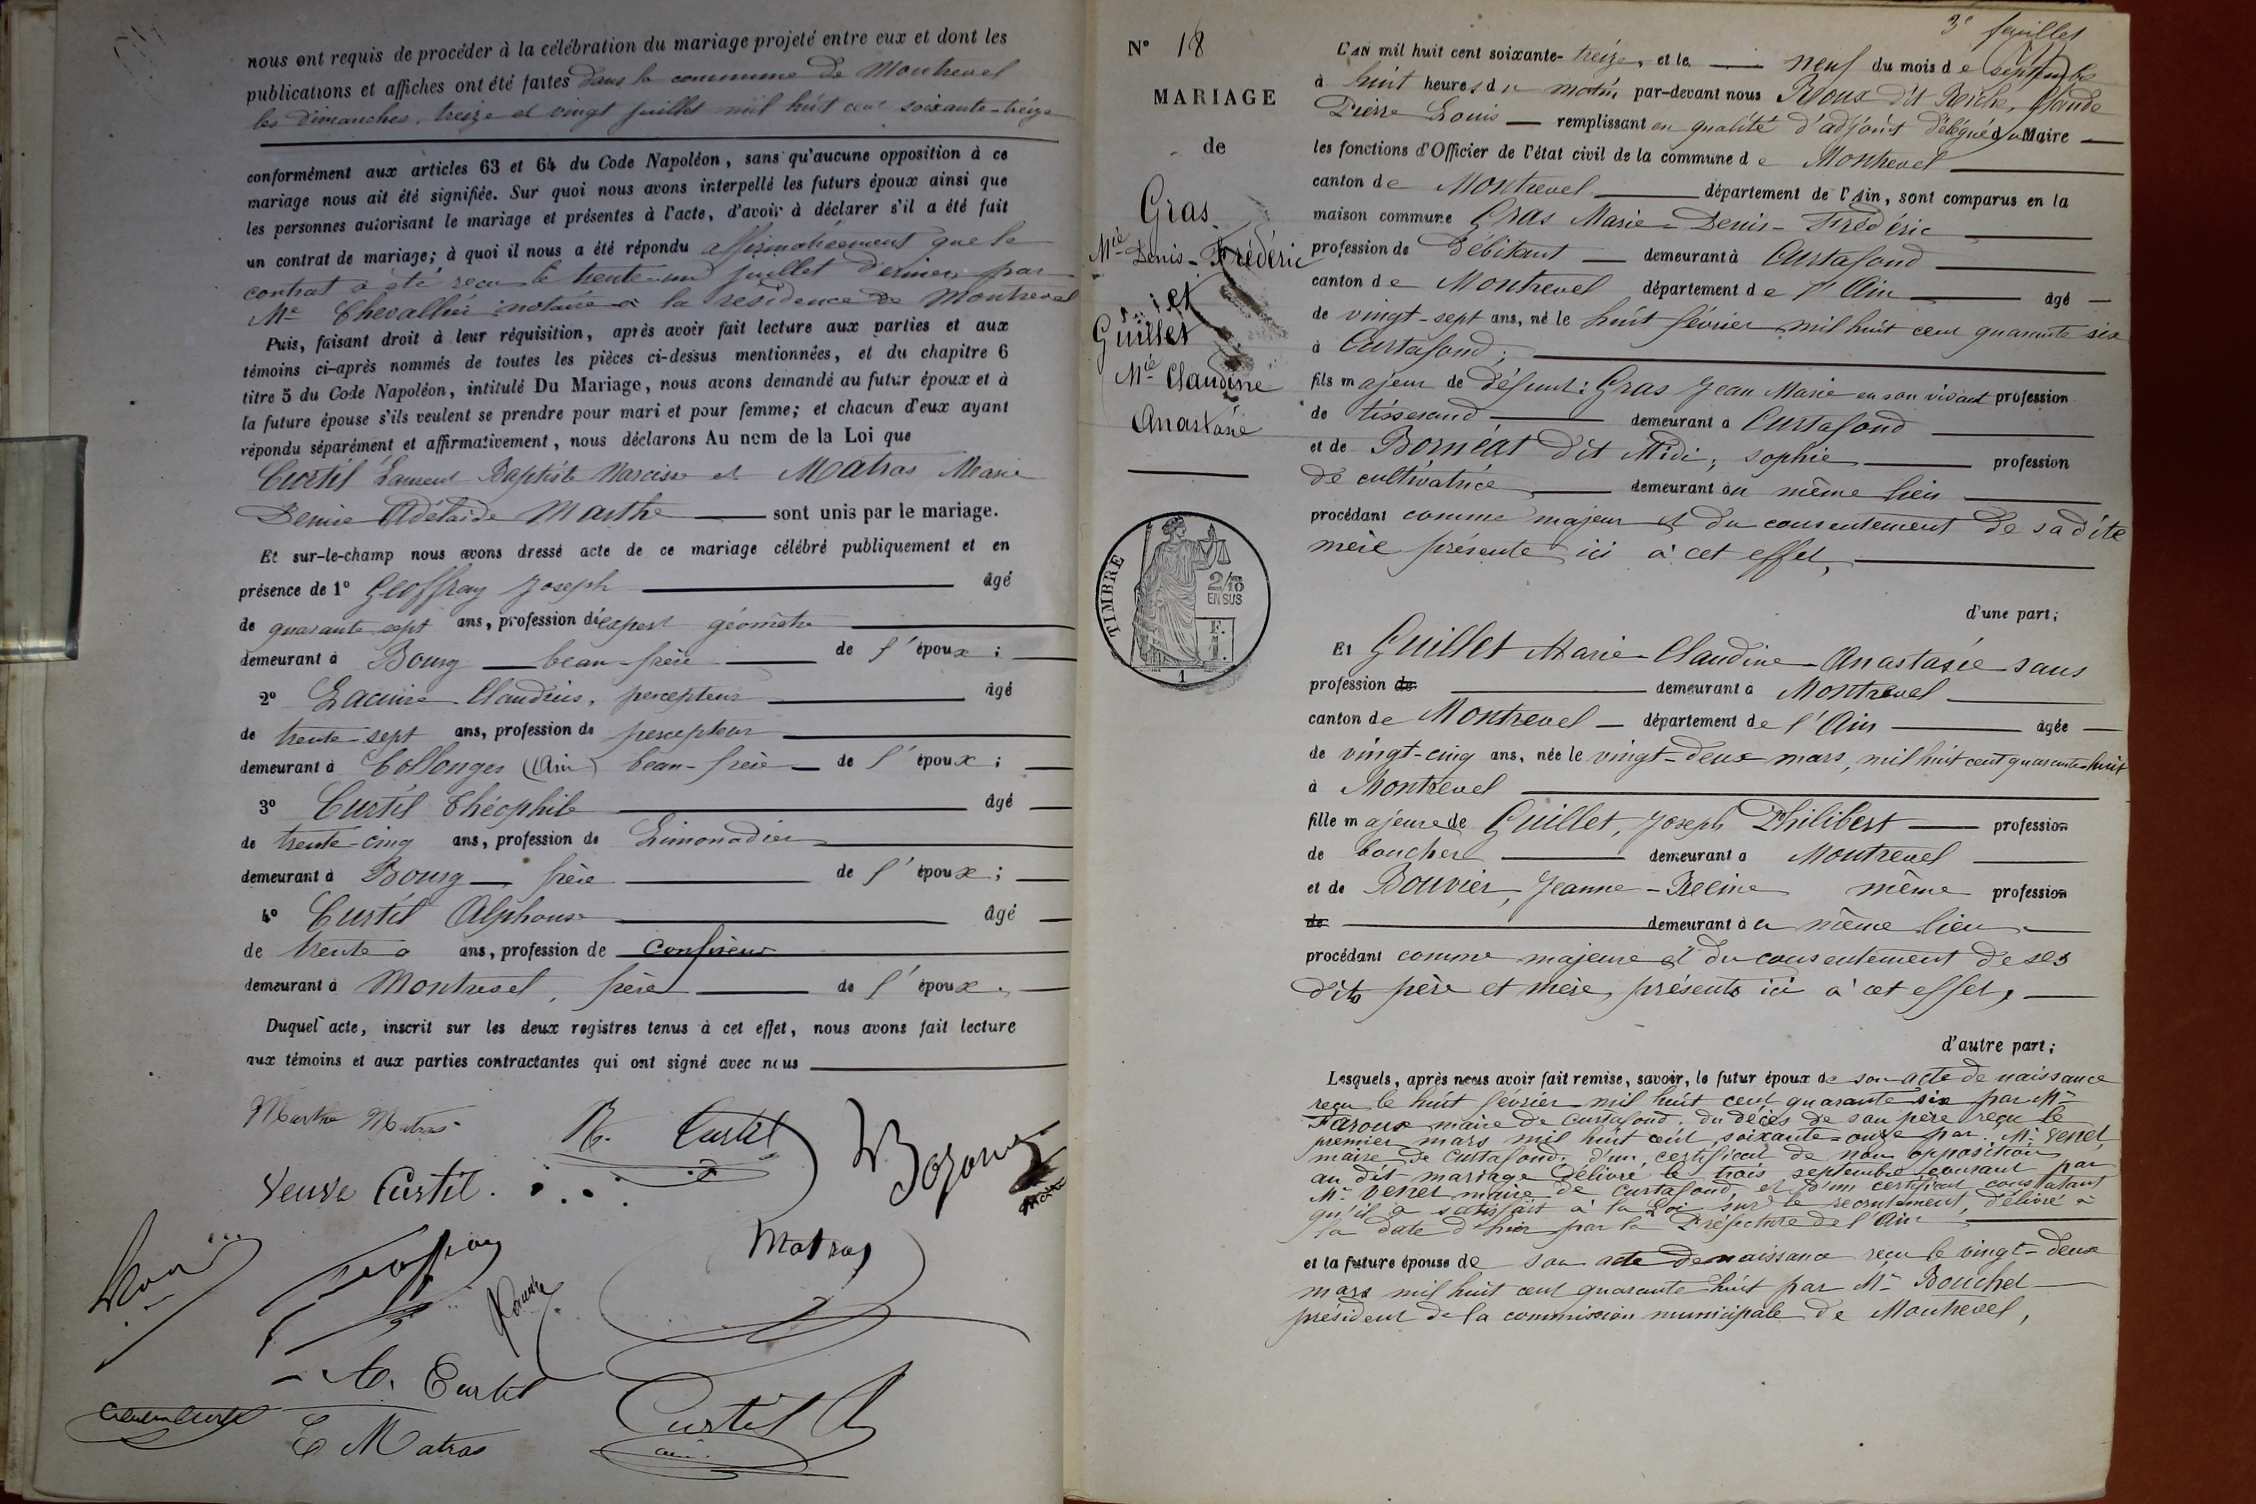 nous ont requis de procéder à la célébration du mariage projeté entre eux et dont les
publications et affiches ont été faites dans la commune de Montrevel
les dimanches, treize et vingt juillet mil huit cent soixante-treize
conformément aux articles 63 et 64 du Code Napoléon, sans qu'aucune opposition à ce
mariage nous ait été signifiée. Sur quoi nous avons interpellé les futurs époux ainsi que
les personnes autorisant le mariage et présentes à l'acte, d'avoir à déclarer s'il a été fait
un contrat de mariage; à quoi il nous a été répondu affirmativement que le
contrat a été reçu le trente-un juillet dernier par
Me Chevallier notaire à la résidence de Montrevel
Puis, faisant droit à leur réquisition, après avoir fait lecture aux parties et aux
témoins ci-après nommés de toutes les pièces ci-dessus mentionnées, et du chapitre 6
titre 5 du Code Napoléon, intitulé Du Mariage, nous avons demandé au futur époux et à
la future épouse s'ils veulent se prendre pour mari et pour femme; et chacun d'eux ayant
répondu séparément et affirmativement, nous déclarons Au nom de la Loi que
Curtil Laurent Baptiste Narcisse et Matras Marie
Denise Adélaïde Marthe sont unis par le mariage.
Et sur-le-champ nous avons dressé acte de ce mariage célébré publiquement et en
présence de 1° Geoffray Joseph âgé
de quarante sept ans, profession de expert géomètre
demeurant à Bourg beau-frère de l'époux;
2° Claudius, percepteur âgé
de trente-sept ans, profession de percepteur
demeurant à Collonges (Ain) beau-frère de l'époux;
3° Curtil Théophile âgé
de trente-cinq ans, profession de Limonadier
demeurant à Bourg frère de l'époux;
4° Curtil Alphonse âgé
de trente ans, profession de Confiseur
demeurant à Montrevel, frère de l'époux.
Duquel acte, inscrit sur les deux registres tenus à cet effet, nous avons fait lecture
aux témoins et aux parties contractantes qui ont signé avec nous
Marthe Matras
N. Curtil
Veuve Curtil
Matras
A. Curtil
E Matras
Curtil
3e feuillet
N° 18
MARIAGE
de
Gras
Mie Denis-Frédéric
et
Guillet
Mie Claudine
Anastasie
TIMBRE
2/10
EN SUS
F.
1.
1
L'AN mil huit cent soixante-treize, et le neuf du mois de septembre
à huit heures du matin par-devant nous Roux dit Berche, Claude
Pierre Louis remplissant en qualité d'adjoint délégué du Maire
les fonctions d'Officier de l'état civil de la commune de Montrevel
canton de Montrevel département de l'Ain, sont comparus en la
maison commune Gras Marie-Denis-Frédéric
profession de Débitant demeurant à Curtafond
canton de Montrevel département de l'Ain âgé
de vingt-sept ans, né le huit février mil huit cent quarante six
à Curtafond;
fils majeur de défunt: Gras Jean Marie en son vivant profession
de tisserand demeurant à Curtafond
et de Bornéat dit Midi, sophie profession
de cultivatrice demeurant au même lieu
procédant comme majeur et du consentement de sa dite
mère présente ici à cet effet,
d'une part;
Et Guillet Marie-Claudine-Anastasie sans
profession de demeurant à Montrevel
canton de Montrevel département de l'Ain âgée
de vingt-cinq ans, née le vingt-deux mars, mil huit cent quarante-huit
à Montrevel
fille majeure de Guillet, Joseph Philibert profession
de boucher demeurant à Montrevel
et de Bouvier, Jeanne-Reine même profession
de demeurant au même lieu
procédant comme majeure et du consentement de ses
dits père et mère, présents ici à cet effet,
d'autre part;
Lesquels, après nous avoir fait remise, savoir, le futur époux de son acte de naissance
reçu le huit février mil huit cent quarante six par Mr
Faroux maire de Curtafond. du décès de son père reçu le
premier mars mil huit cent soixante-onze par Mr Venet,
maire de Curtafond, d'un certificat de non opposition
au dit mariage délivré le trois septembre courant par
Mr Venet maire de Curtafond, et d'un certificat constatant
qu'il a satisfait à la Loi sur le recrutement, délivré à
la date d'hier par la Préfecture de l'Ain
et la future épouse de son acte de naissance reçu le vingt-deux
mars mil huit cent quarante huit par Mr Bouchet
président de la commission municipale de Montrevel,